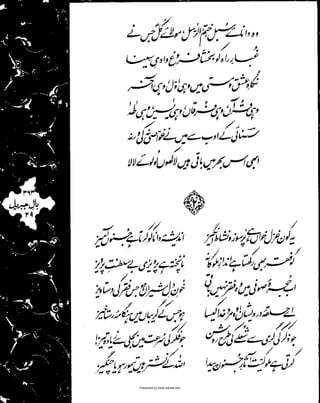 وہ دانائے سبل، ختم الرسل، مولائے کل جس نے
غبارِ راہ کو بخشا فروغِ وادیِ سینا
نگاہِ عشق و مستی میں وہی اول، وہی آخر
وہی قرآں، وہی فرقاں، وہی یٰسیں، وہی طٰہٰ
سنائی کے ادب سے میں نے غواصی نہ کی ورنہ
ابھی اس بحر میں باقی ہیں لاکھوں لولوئے لالا
بالِ جبریل
۳۹
یہ کون غزل خواں ہے پرسوز و نشاط انگیز اندیشۂ دانا کو کرتا ہے جنوں آمیز
گو فقر بھی رکھتا ہے اندازِ ملوکانہ نا پختہ ہے پرویزی بے سلطنتِ پرویز
اب حجرۂ صوفی میں وہ فقر نہیں باقی خونِ دلِ شیراں ہو جس فقر کی دستاویز
اے حلقۂ درویشاں! وہ مردِ خدا کیسا ہو جس کے گریباں میں ہنگامۂ رستاخیز
جو ذکر کی گرمی سے شعلے کی طرح روشن جو فکر کی سرعت میں بجلی سے زیادہ تیز
کرتی ہے ملوکیت آثارِ جنوں پیدا اللہ کے نشتر ہیں تیمور ہو یا چنگیز
Presented by www.ziaraat.com